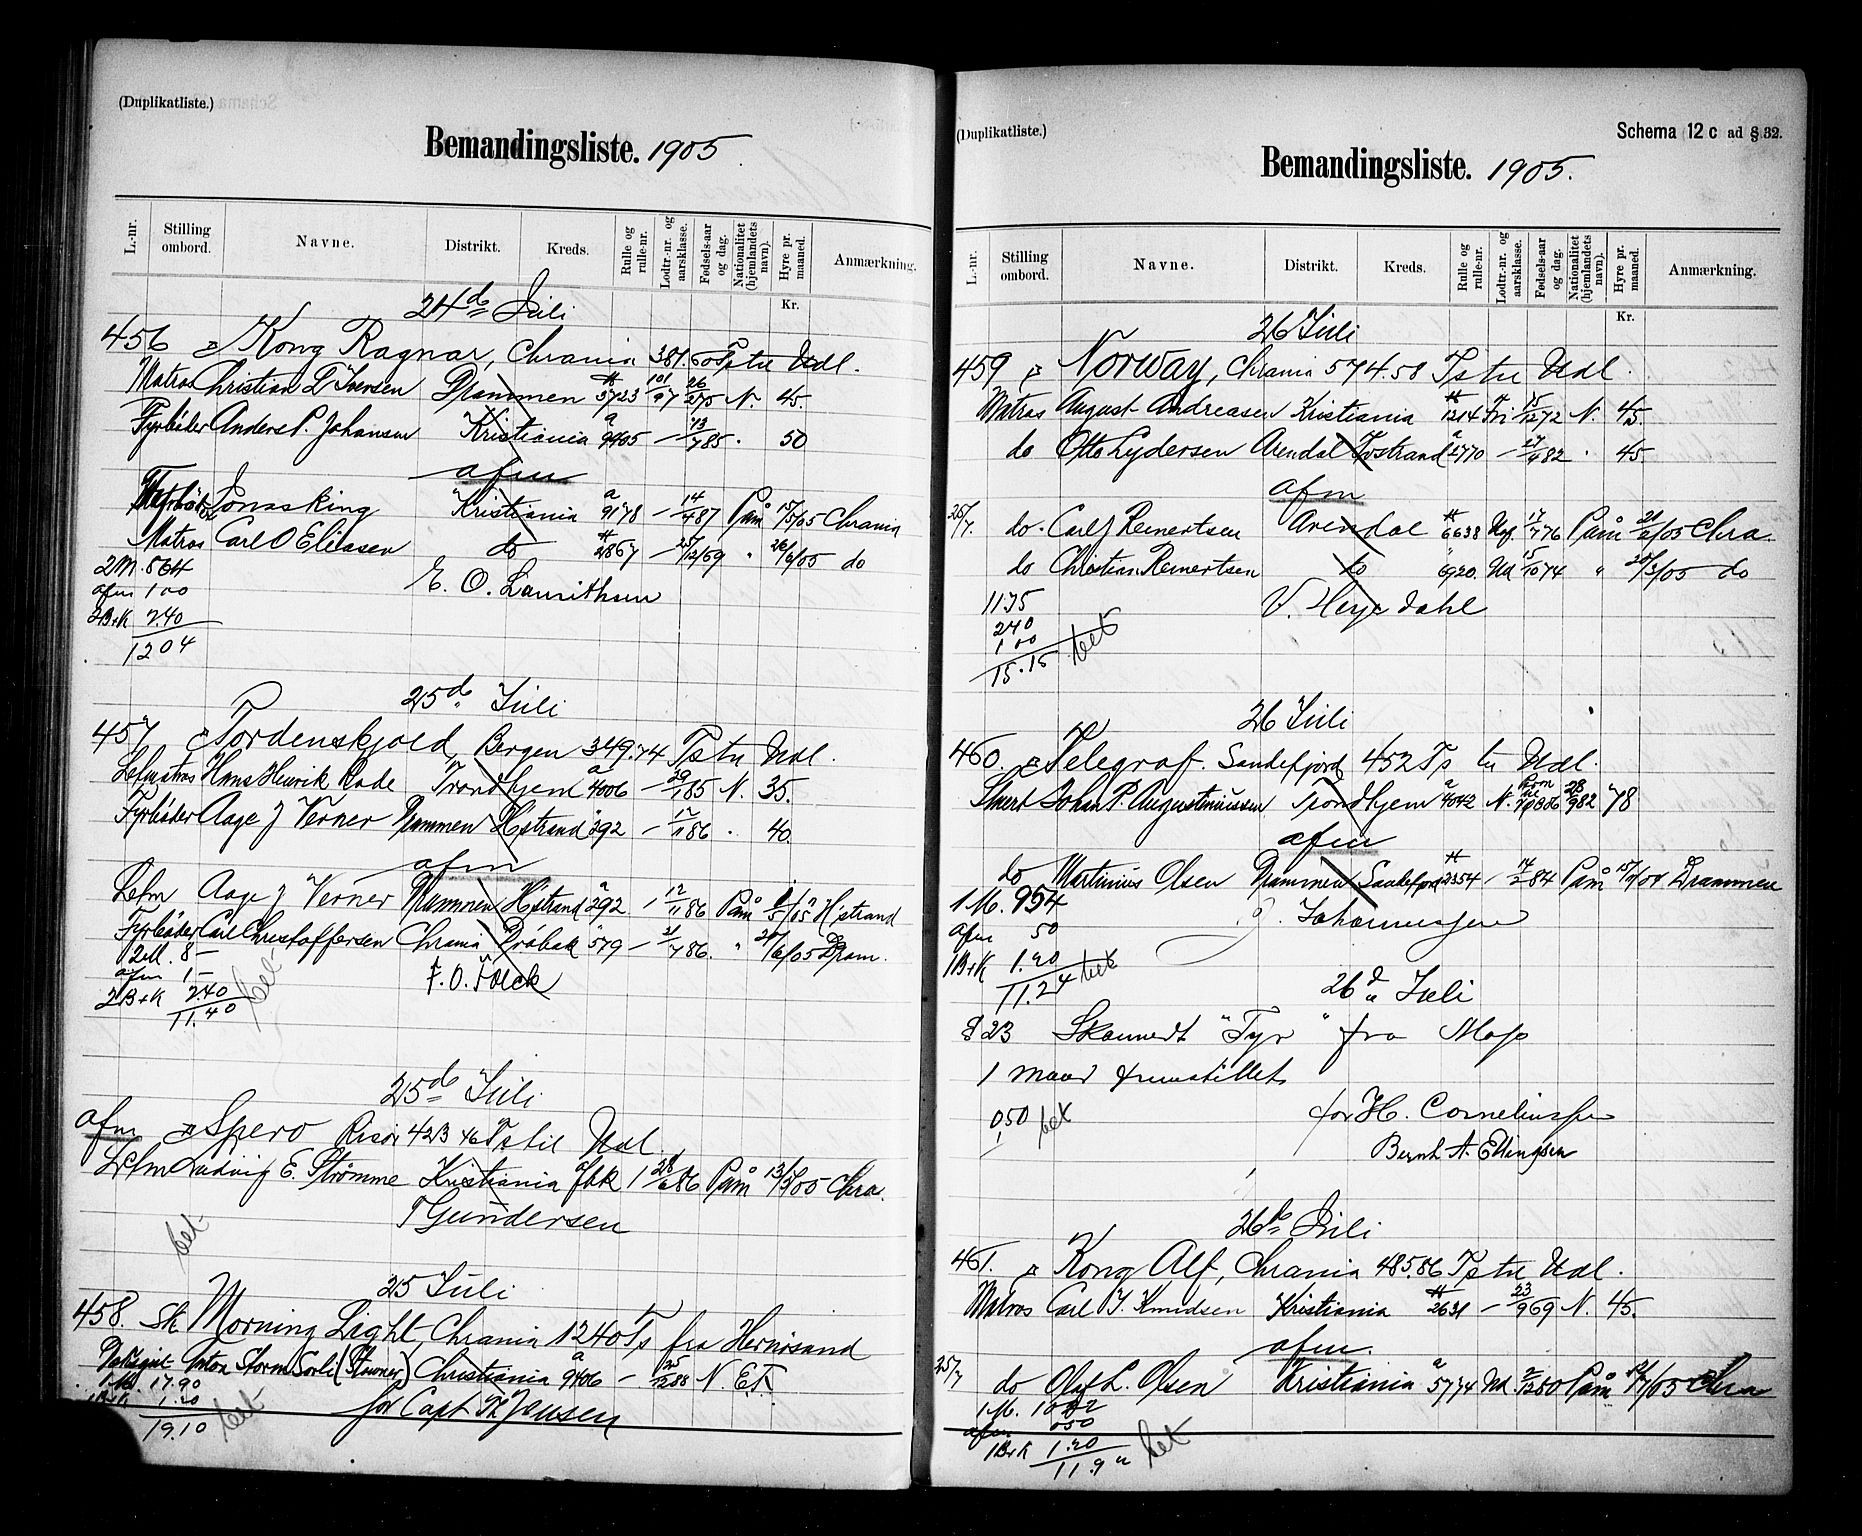 (Duplikatliste.)
Bemandingsliste. 1905
L.-nr. Stilling ombord. Navne. Distrikt. Kreds. Rulle og rulle-nr. Lodtr.-nr. og aarsklasse. Fødsels-aar og dag. Nationalitet (hjemlandets navn). Hyre pr. maaned. Anmærkning.
Kr.
24de Juli
456 Kong Ragnar, Chrania 381.60 Ts til Udl.
Matros Christian L Iversen Drammen 5723 101/97 26/2 75 N. 45.
Fyrbøder Anders P. Johansen Kristiania a 9405 — 13/7 85 . 50
afm
Jonas King Kristiania a 9178 — 14/4 87 Paam 15/5 05 Chrania
Matros Carl O Eliasen do 2867 — 25/12 69 " 26/6 05 do
2 M. 864
afm 100
2B+K 2.40
1204
E. O. Laurithsen
25de Juli
457 Tordenskjold, Bergen 349.74 Ts til Udl.
Letmatros Hans Henrik Rode Trondhjem a 4006 — 29/1 85 N. 35.
Fyrbøder Aage J Verner Drammen H.strand 292 — 12/11 86 . 40.
afm
Letm Aage J Verner Drammen H.strand a 292 — 12/11 86 Paam 9/5 05 H.strand
Fyrbøder Carl Christoffersen Chrania Drøbak 579 — 21/7 86. " 20/6 05 Dram.
2M. 8—
afm 1—
2B+K 2.40
11.40
bet
F. O. Falck
25de Juli
afm Spero Risør 423 46 Ts til Udl
Letm Ludvig E. Strømme Kristiania fbk 1 28/6 86 Paam 13/5 05 Chra.
T Gundersen
bet
25 Juli
458. Sk Morning Light, Chrania 1240 Ts fra Hernøsand
Dæksgut Anton Storm Sørli (Stuuner) Christiania a 9406 — 25/12 88 N. Et.
1 M. 17.90
1B+K 1.20
19.10
bet
for Capt Th Jensen
(Duplikatliste.)
Schema 12 c ad § 32.
Bemandingsliste. 1905.
L.-nr. Stilling ombord. Navne. Distrikt. Kreds. Rulle og rulle-nr. Lodtr.-nr. og aarsklasse. Fødsels-aar og dag. Nationalitet (hjemlandets navn). Hyre pr. maaned. Anmærkning.
Kr.
26 Juli
459 Norway, Chrania 574.58 Ts til Udl.
Matros August Andreasen Kristiania 1214 Fri 15/12 72 N. 45.
do Otto Lydersen Arendal Tvestrand a 2770 — 27/6 82 . 45.
afm
25/7. do. Carl J Reinertsen Arendal 6638 Uof. 17/7 76 Paam 21/2 05 Chra.
do Christian Reinertsen do 6920. Ud 15/10 74 " 20/3 05 do
11.75
240
100
15.15
bet
V. Heye Dahl
26 Juli
460. Telegraf. Sandefjord 452 Ts til Udl.
Stuert Johan P. Augustinussen Trondhjem a 4042 N. 28/9 82 78
afm
do Martinus Olsen Drammen Sandefjord 2354 — 14/2 84 Paam Drammen
1 M. 954
afm 50
1B+K 1.20
11.24
bet
J. Johannessen
26d Juli
§ 23 Skonnert "Tyr" fra Moss
1 mand
050 bet
for H. Corneliussen
Bernh A. Ellingsen
26de Juli
461. Kong Alf, Chrania 485.86 Ts til Udl.
Matros Carl J. Knudsen Kristiania 2631 — 23/9 69 N. 45.
afm.
25/7 do Olaf L. Olsen Kristiania a 5774 Ud 2/12 80 Paam Chra
1 M.
afm 050
1B+K 1.20
11.9
bet